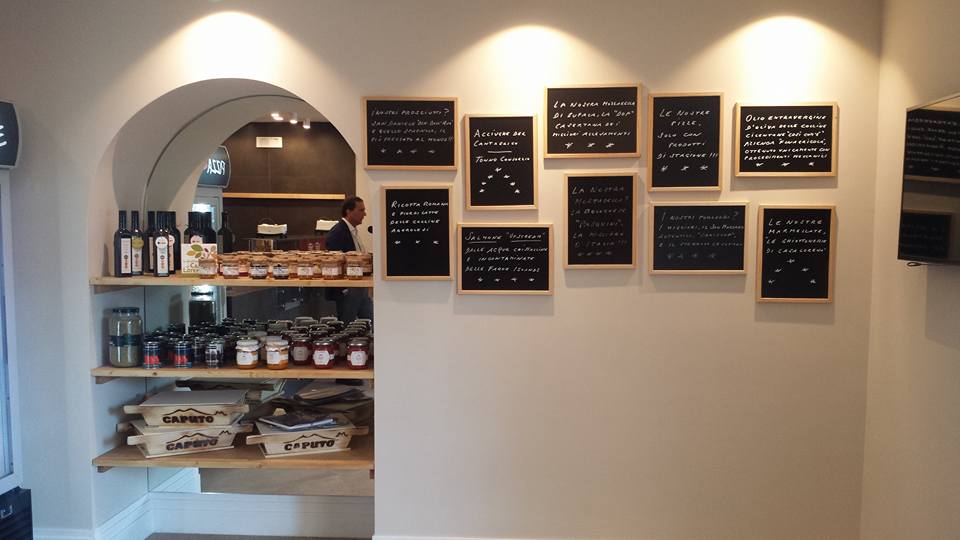 I NOSTRI PROSCIUTTI?
SAN DANIELE "DOK DALL'AVA"
E QUELLO SPAGNOLO, IL
PIÙ PREGIATO AL MONDO!!!
ACCIUGHE DEL
CANTABRICO
TONNO CONSORCIO
LA NOSTRA MOZZARELLA
DI BUFALA, LA "DOP"
CASERTANA DEI
MIGLIORI ALLEVAMENTI
LE NOSTRE
PIZZE,
SOLO CON
PRODOTTI
DI STAGIONE!!!
OLIO EXTRAVERGINE
D'OLIVA DELLE COLLINE
CILENTANE "COSÌ COM'È"
AZIENDA
OTTENUTO UNICAMENTE CON
PROCEDIMENTI MECCANICI
RICOTTA ROMANA
E FIORDILATTE
DELLE COLLINE
AGEROLESI
SALMONE "UPSTREAM"
DALLE ACQUE CRISTALLINE
E INCONTAMINATE
DELLE FAROE ISLANDS
LA NOSTRA
MORTADELLA?
LA BOLOGNESE
"PASQUINI"
LA MIGLIORE
D'ITALIA!!!
I NOSTRI POMODORI?
I MIGLIORI, IL SAN MARZANO
LE NOSTRE
MARMELLATE,
LE GHIOTTONERIE
DI CASA LORENA
PIZZA
CAPUTO
CAPUTO
CAPUTO